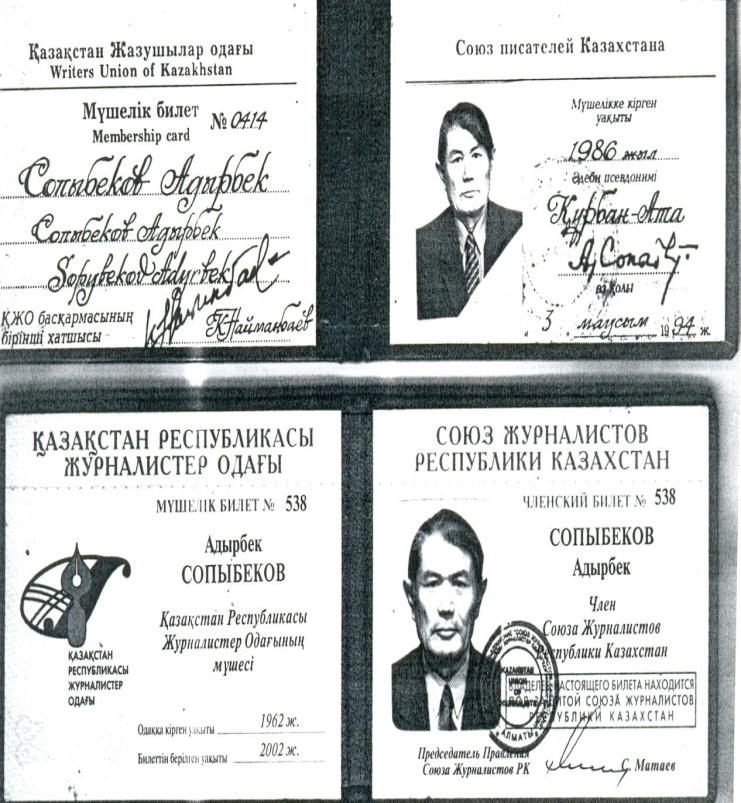 Қазақстан Жазушылар одағы
Writers Union of Kazakhstan
Мүшелік билет № 0414
Membership card
Сопыбеков Адырбек
Сопыбеков Адырбек
Sopybekov Adyrbek
ҚЖО басқармасының
бірінші хатшысы
Н. Найманбаев
Союз писателей Казахстана
Мүшелікке кірген
уақыты
1986 жыл
Әдеби псевдонимі
Құрбан-Ата
өз қолы
3 маусым 1994 ж.
ҚАЗАҚСТАН РЕСПУБЛИКАСЫ
ЖУРНАЛИСТЕР ОДАҒЫ
МҮШЕЛІК БИЛЕТ № 538
Адырбек
СОПЫБЕКОВ
Қазақстан Республикасы
Журналистер Одағының
мүшесі
ҚАЗАҚСТАН
РЕСПУБЛИКАСЫ
ЖУРНАЛИСТЕР
ОДАҒЫ
Одаққа кірген уақыты 1962 ж.
Билеттің берілген уақыты 2002 ж.
СОЮЗ ЖУРНАЛИСТОВ
РЕСПУБЛИКИ КАЗАХСТАН
ЧЛЕНСКИЙ БИЛЕТ № 538
СОПЫБЕКОВ
Адырбек
Член
Союза Журналистов
Республики Казахстан
KAZAKHSTAN
UNION
OF
АЛМАТЫ
ВЛАДЕЛЕЦ НАСТОЯЩЕГО БИЛЕТА НАХОДИТСЯ
ПОД ЗАЩИТОЙ СОЮЗА ЖУРНАЛИСТОВ
РЕСПУБЛИКИ КАЗАХСТАН
Председатель Правления
Союза Журналистов РК
С. Матаев